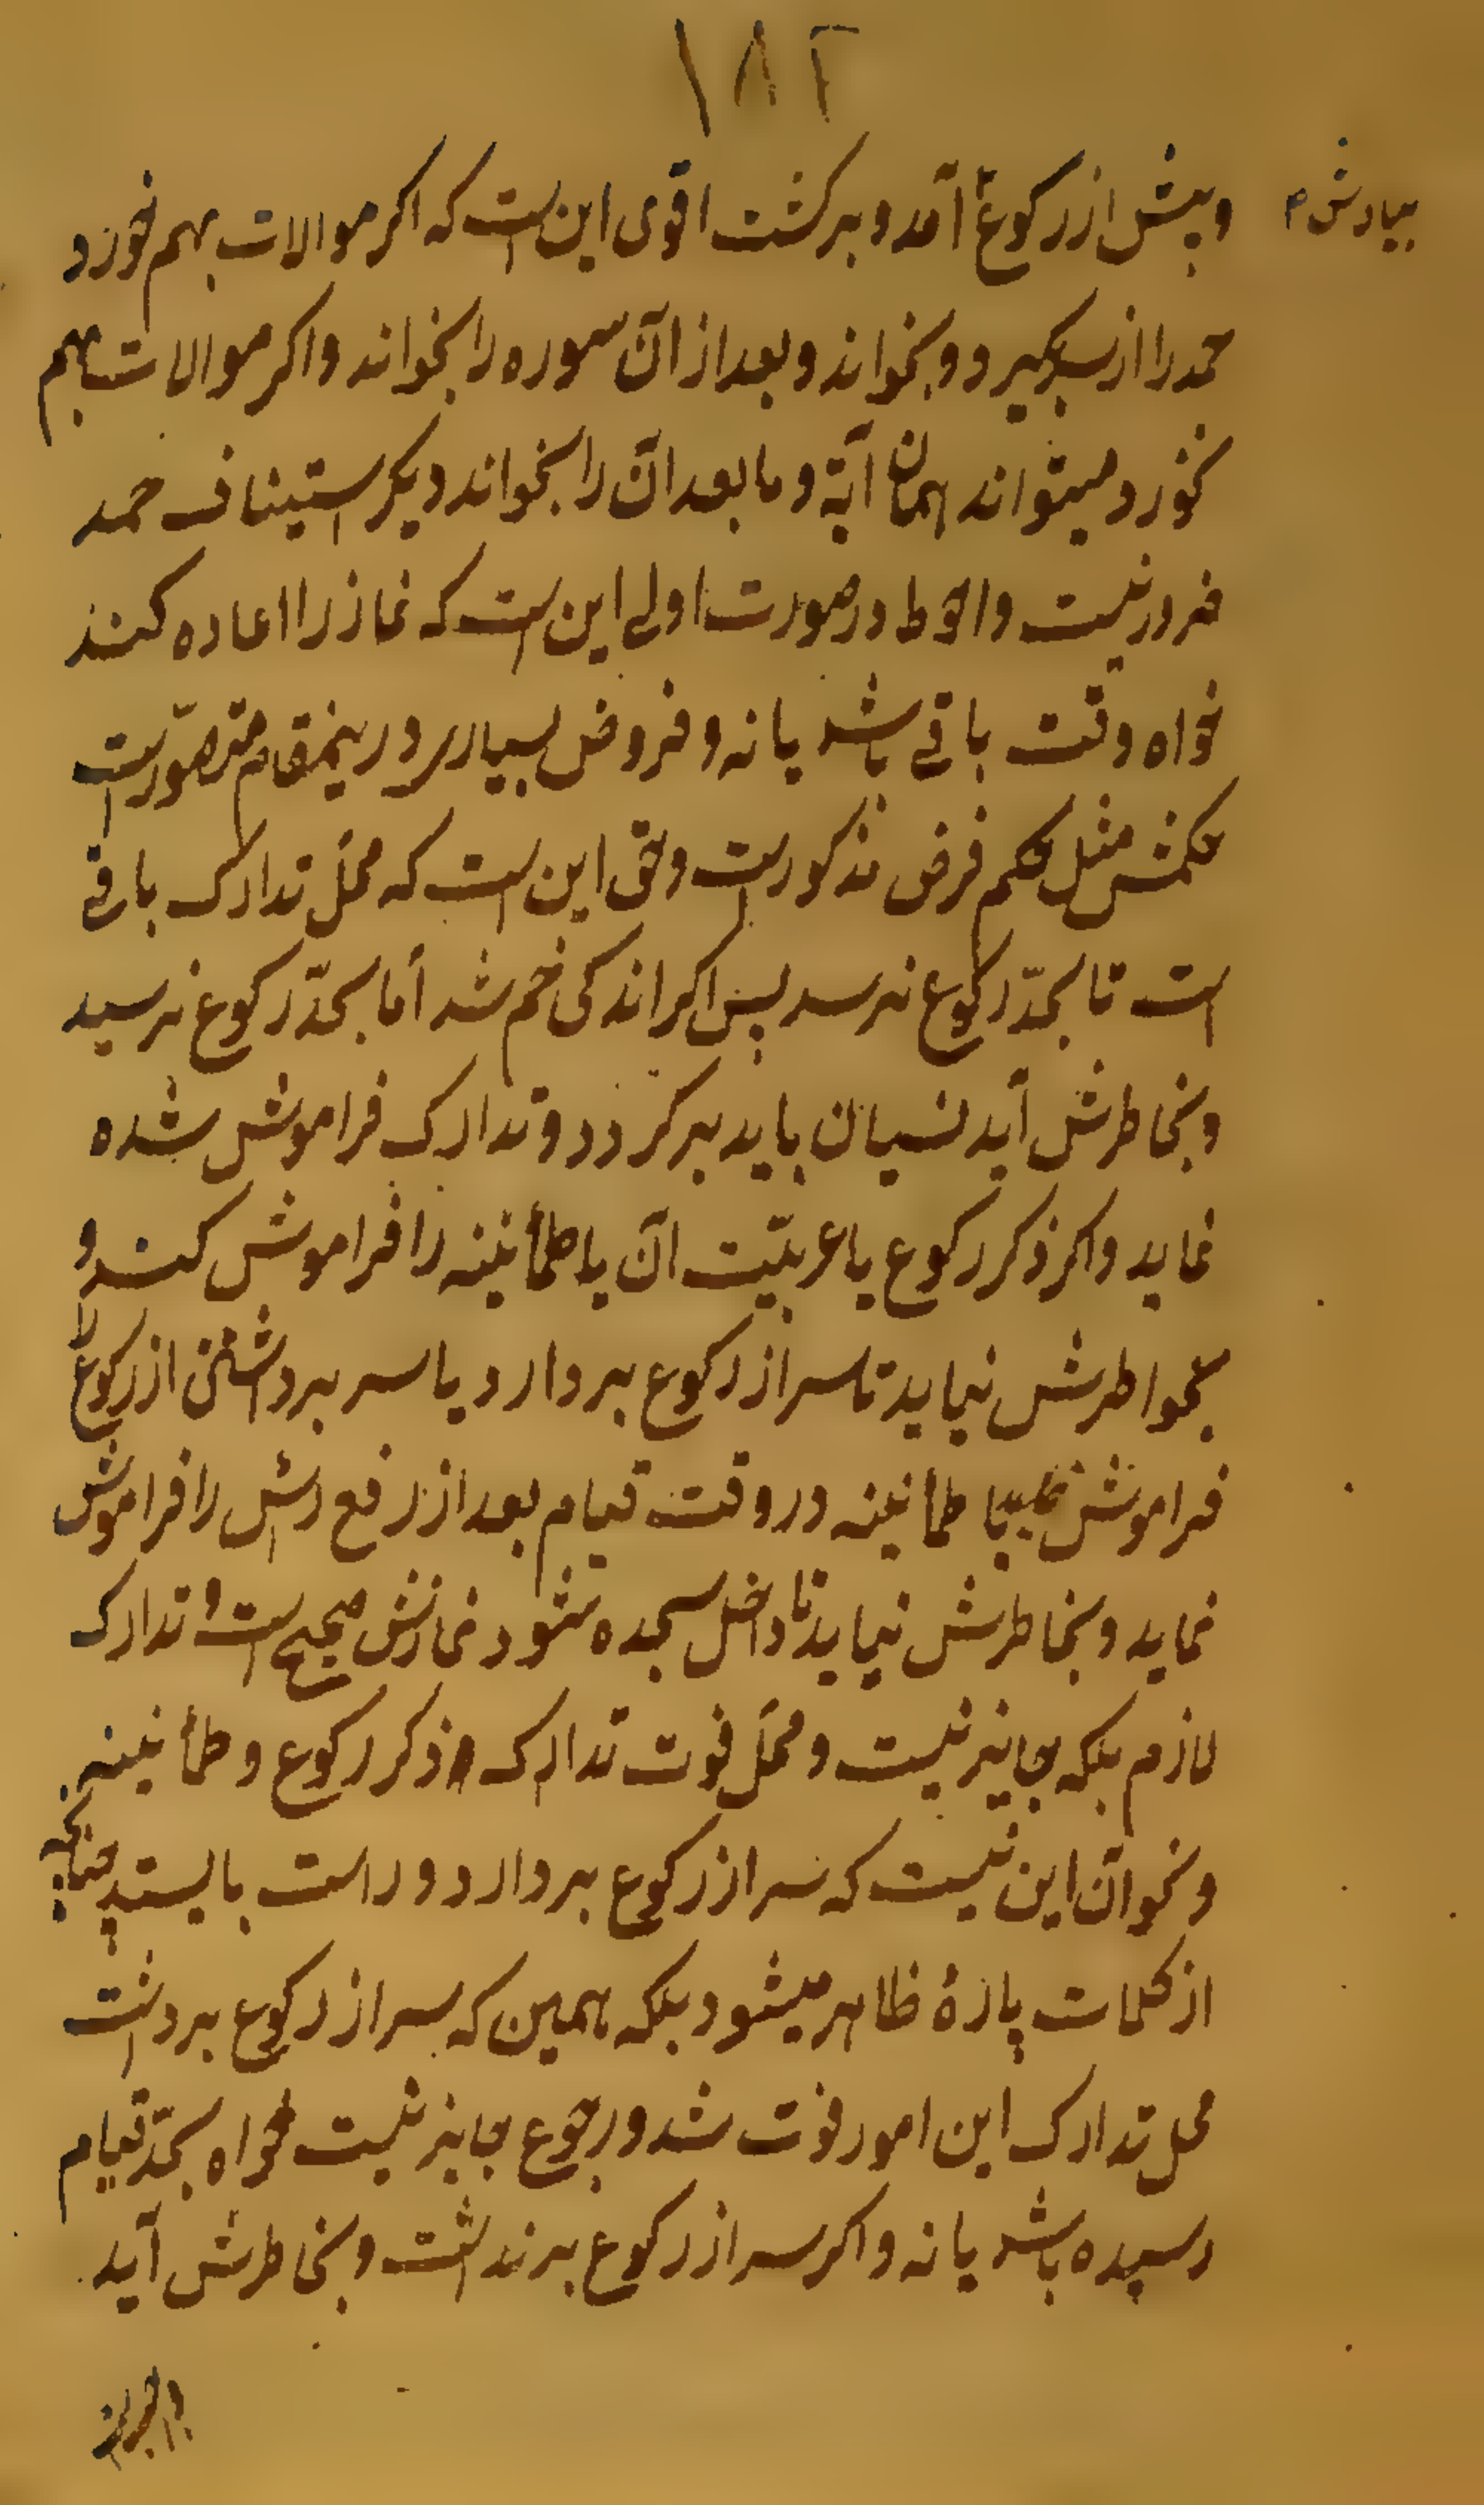 ۱۸۲
بیادش
و پیش از رکوع آمد و برکشت اقوی این است که اکر موالات بهم نخورد
حمد را از سر بکیرد و بخواند و بعد از ان سوره را بخواند و اکر موالات بهم
نخورد میتواند همان آیة و ما بعد آن را بخواند دیکر استیناف حمد
ضرور نیست و احوط در صورت اولی این است که نماز را اعاده کند
خواه وقت باقی باشد یا نه و فروض بسیاری در ینمقام متصوّر است
حکمش مثل حکم فرض مذکور است و حق این است که محلّ تدارک باقی
است تا بحدّ رکوع نرسد پس اکر اندکی خم شد امّا بحدّ رکوع نرسید
و بخاطرش آید نسیان باید برکردد و تدارک فراموش شده
نماید و اکر ذکر رکوع یا عربیّت آن یا طمأنینه را فراموش کند و
بخواطرش نیاید تا سر از رکوع بردارد یا سر برداشتن از رکوع را
فراموش یا طمأنینه در وقت قیام بعد از رفع رأس را فراموش
نماید و بخاطرش نیاید تا داخل سجده شود نمازش صحیح است و تدارک
لازم بلکه جایز نیست و محلّ فوت تدارک ذکر رکوع و طمأنینه
و نحو آن این نیست که سر از رکوع بردارد و راست بایستد چنانچه
از کلمات پارهٔ ظاهر میشود بلکه همین که سر از رکوع برداشت
محل تدارک این امور فوت شد و رجوع جایز نیست خواه بحدّ قیام
رسیده باشد یا نه و اکر سر از رکوع برنداشت و بخاطرش آید